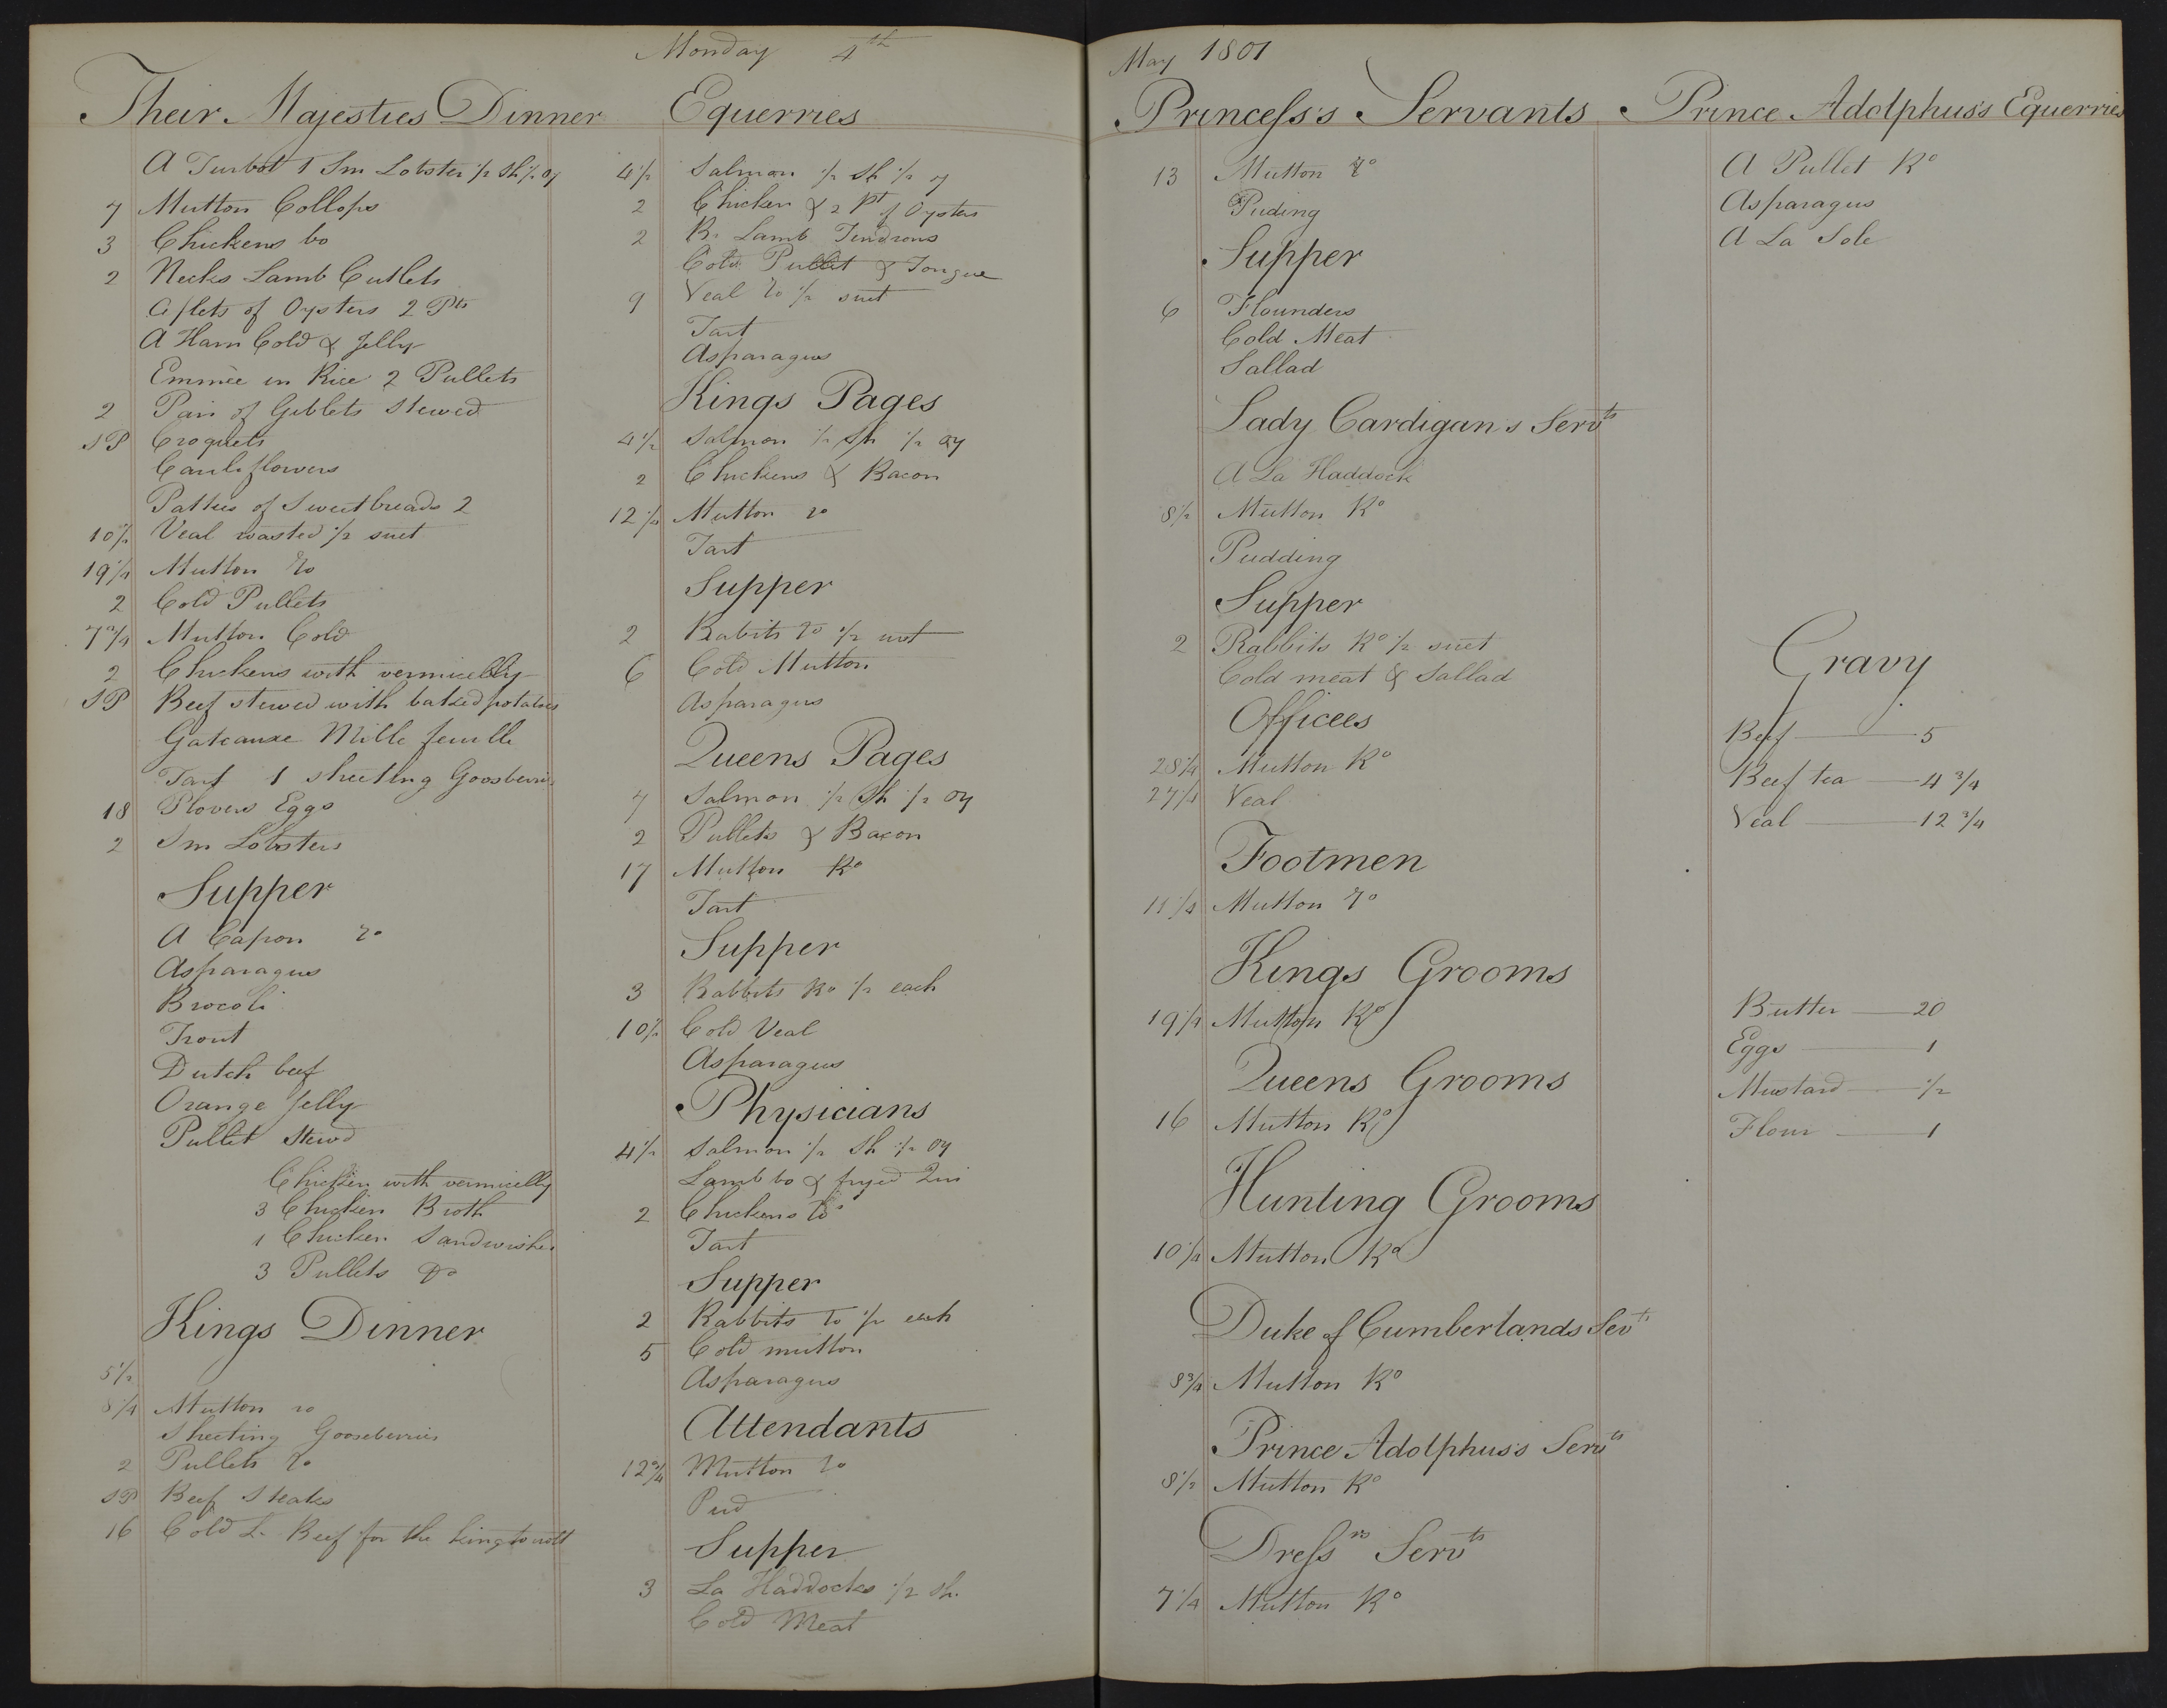 Monday 4th
Their Majesties Dinner
A Turbot 1 Sm Lobster 1/2 Sh 1/2 oy
7 Mutton Collops
3 Chickens bo
2 Necks Lamb Cutlets
of Oysters 2 Pts
A Ham Cold & Jelly
Emmèe in Rice 2 Pullets
2 Pair of Giblets Stewed
SP Croquets
Cauliflowers
Patties of Sweetbreads 2
10 1/2 Veal roasted 1/2 suet
19 1/4 Mutton Ro
2 Cold Pullets
7 3/4 Mutton Cold
2 Chickens with vermicelly
SP Beef stewed with baked potatoes
Gateauxe Mille feuille
Tart 1 sheeting Gooseberries
18 Plovers Eggs
2 Sm Lobsters
Supper
A Capon ro
Asparagus
Brocoli
Trout
Dutch beef
Orange Jelly
Pullet Stewd
Chicken with vermicelly
3 Chicken Broth
1 Chicken Sandwishes
3 Pullets Do
Kings Dinner
5 1/2
8 1/4 Mutton ro
Sheeting Gooseberries
2 Pullets ro
SP Beef Steaks
16 Cold L. Beef for the
Equerries
4 1/2 Salmon 1/2 Sh 1/2 oy
2 Chicken & 2 Pt of Oysters
2 B. Lamb Tendrons
Cold Pullet & Tongue
9 Veal ro 1/2 suet
Tart
Asparagus
Kings Pages
4 1/2 Salmon 1/2 Sh 1/2 oy
2 Chickens & Bacon
12 1/2 Mutton ro
Tart
Supper
2 Rabits ro 1/2
6 Cold Mutton
Asparagus
Queens Pages
7 Salmon 1/2 Sh 1/2 oy
2 Pullets & Bacon
17 Mutton Ro
Tart
Supper
3 Rabbits Ro 1/2 each
10 1/2 Cold Veal
Asparagus
Physicians
4 1/2 Salmon 1/2 Sh 1/2 oy
Lamb bo & fryed
2 Chickens
Tart
Supper
2 Rabbits ro 1/2 each
5 Cold mutton
Asparagus
Attendants
12 3/4 Mutton ro
Pud
Supper
3 La Haddocks 1/2 Sh.
Cold Meat
May 1801
Princess's Servants
13 Mutton Ro
Puding
Supper
6 Flounders
Cold Meat
Sallad
Lady Cardigan's Servts
A La Haddock
8 1/2 Mutton Ro
Pudding
Supper
2 Rabbits Ro 1/2 suet
Cold meat & Sallad
Officees
28 1/4 Mutton Ro
27 1/4 Veal
Footmen
11 1/4 Mutton ro
Kings Grooms
19 1/4 Mutton Ro
Queens Grooms
16 Mutton Ro
Hunting Grooms
10 1/4 Mutton Ro
Duke of Cumberlands Sevts
8 3/4 Mutton Ro
Prince Adolphus's Servts
8 1/2 Mutton Ro
Dressrs Servts
7 1/4 Mutton Ro
Prince Adolphus's Equerries
A Pullet Ro
Asparagus
A La Sole
Gravy
Beef 5
Beef tea 4 3/4
Veal 12 3/4
Butter 20
Eggs 1
Mustard 1/2
Flour 1